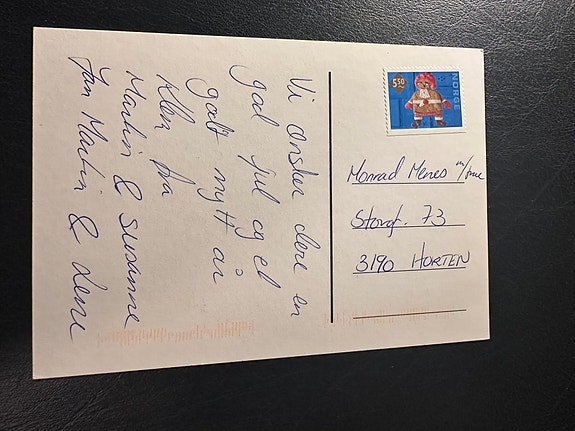 Vi ønsker dere en
god jul og et
godt nytt år
Klem fra
Martin & Susanne
Jan Martin & Lene
NORGE
5,50
Monrad Menes m/frue
Storgt. 73
3190 HORTEN